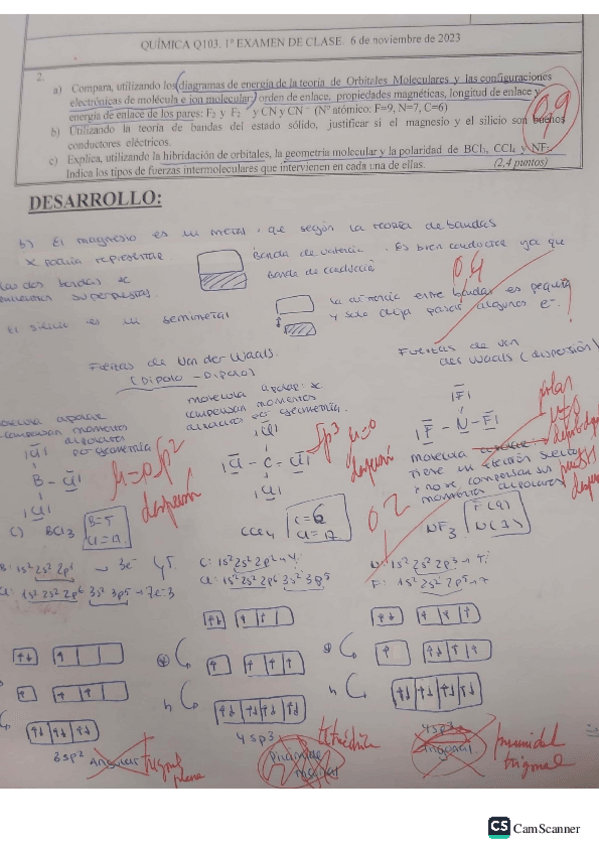 QUÍMICA Q103. 1º EXAMEN DE CLASE. 6 de noviembre de 2023
2.
a) Compara, utilizando los diagramas de energía de la teoría de Orbitales Moleculares y las configuraciones
electrónicas de molécula e ion molecular, orden de enlace, propiedades magnéticas, longitud de enlace y
energía de enlace de los pares: F₂ y F₂⁻ y CN y CN⁻ (Nº atómico: F=9, N=7, C=6)
b) Utilizando la teoría de bandas del estado sólido, justificar si el magnesio y el silicio son buenos
conductores eléctricos.
c) Explica, utilizando la hibridación de orbitales, la geometría molecular y la polaridad de BCl₃, CCl₄ y NF₃.
Indica los tipos de fuerzas intermoleculares que intervienen en cada una de ellas. (2,4 puntos)
0,9
DESARROLLO:
b) El magnesio es un metal, que según la teoría de bandas
se podría representar
Banda de valencia
Banda de conducción
. Es buen conductor ya que
las dos bandas se
superpuestas.
0,4
El silicio es un semimetal
la diferencia entre bandas es pequeña
y solo deja pasar algunos e⁻.
Fuerzas de Van der Waals.
(Dipolo - Dipolo)
Fuerzas de Van
der Waals (dispersión)
molécula apolar
compensan momentos
por geometría
molécula apolar: se
compensan momentos
por geometría.
|Cl|
B - Cl|
|Cl|
μ=0 sp²
|Cl|
|Cl - C - Cl|
|Cl|
sp³ μ=0
|F|
|F - N - F|
polar
μ≠0
molécula
tiene un
y no se compensan sus
momentos dipolares
0,2
c) BCl₃
B=5
Cl=17
CCl₄
C=6
Cl=17
NF₃
F(9)
N(7)
B: 1s² 2s² 2p¹ → 3e⁻
Cl: 1s² 2s² 2p⁶ 3s² 3p⁵ → 7e⁻
C: 1s² 2s² 2p²
Cl: 1s² 2s² 2p⁶ 3s² 3p⁵
N: 1s² 2s² 2p³
F: 1s² 2s² 2p⁵ → 7
3sp² Angular trigonal plana
4sp³ tetraédrica
4sp³ Angular piramidal trigonal
CS CamScanner